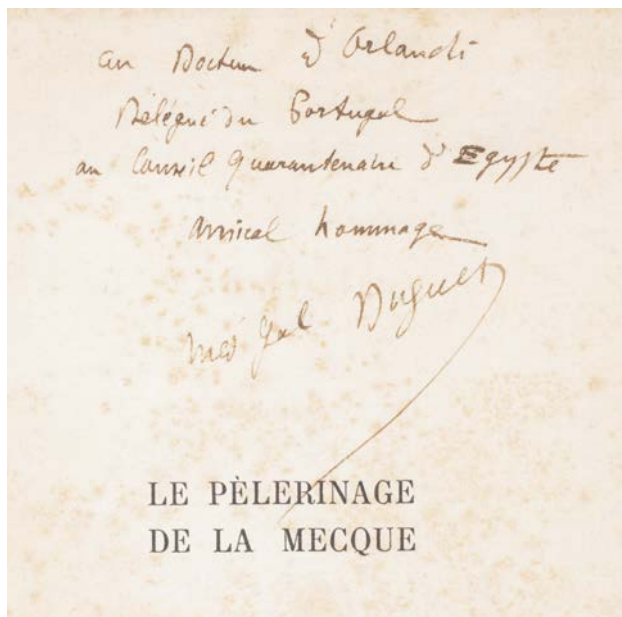 au Docteur d'Orlandi
Délégué du Portugal
au Conseil Quarantenaire d'Egypte
amical hommage
Med Gal Duguet
LE PÈLERINAGE
DE LA MECQUE